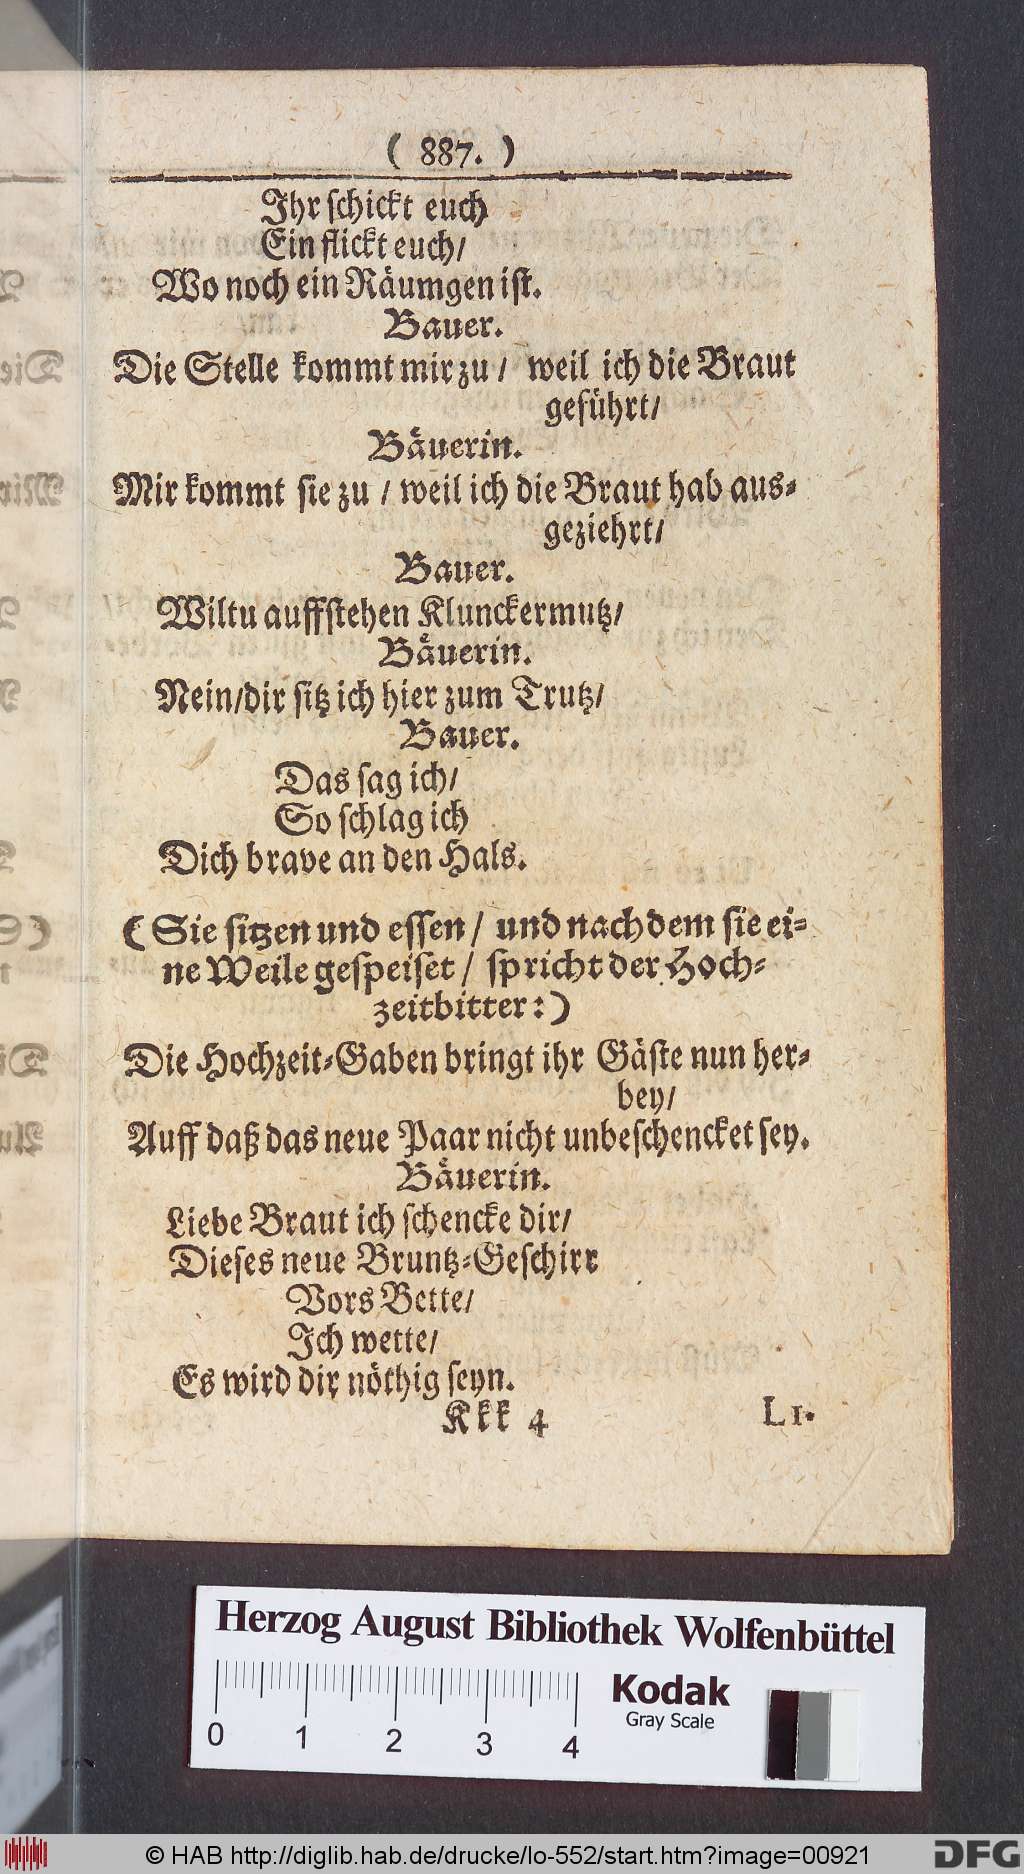 ( 887. )
Ihr schickt euch
Ein flickt euch/
Wo noch ein Räumgen ist.
Bauer.
Die Stelle kommt mir zu / weil ich die Braut
geführt/
Bäuerin.
Mir kommt sie zu / weil ich die Braut hab aus-
geziehrt/
Bauer.
Wiltu auffstehen Klunckermutz/
Bäuerin.
Nein/dir sitz ich hier zum Trutz/
Bauer.
Das sag ich/
So schlag ich
Dich brave an den Hals.
(Sie sitzen und essen / und nachdem sie ei-
ne Weile gespeiset / spricht der Hoch-
zeitbitter:)
Die Hochzeit-Gaben bringt ihr Gäste nun her-
bey/
Auff daß das neue Paar nicht unbeschencket sey.
Bäuerin.
Liebe Braut ich schencke dir/
Dieses neue Bruntz-Geschirr
Vors Bette/
Ich wette/
Es wird dir nöthig seyn.
Kkk 4
L1.
Herzog August Bibliothek Wolfenbüttel
Kodak
Gray Scale
0 1 2 3 4
© HAB http://diglib.hab.de/drucke/lo-552/start.htm?image=00921
DFG